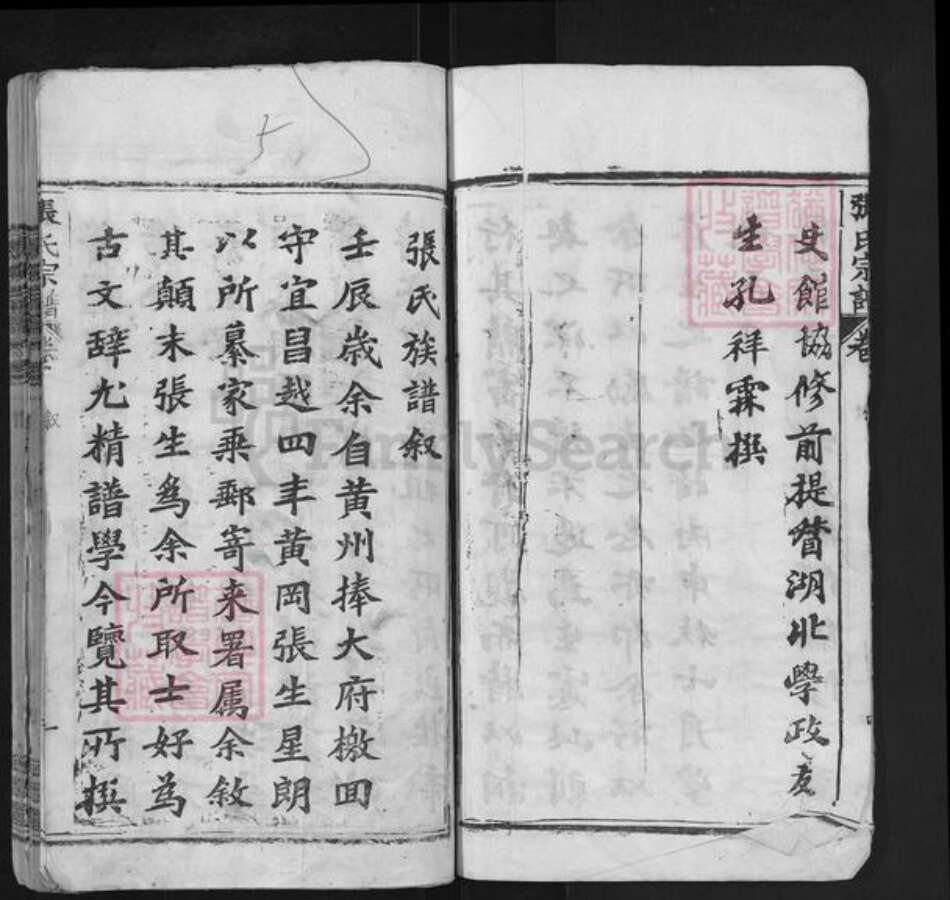 張氏宗譜 卷
史館協修前提督湖北學政友
生孔祥霖撰
張氏族譜叙
壬辰歲余自黃州捧大府檄回
守宜昌越四年黃岡張生星朗
以所纂家乘郵寄來署属余敘
其顛末張生為余所取士好為
古文辭尤精譜學今覽其所撰
張氏宗譜
叙
一
FamilySearch